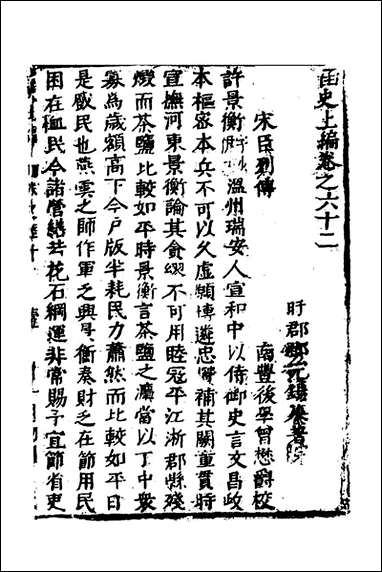 函史上編卷之六十二
盱郡鄧元錫纂著
南豐後學曾懋爵校
宋臣列傳
許景衡溫州瑞安人宣和中以侍御史言文昌政
本樞密本兵不可以久虛願博選忠賢補其闕童貫時
宣撫河東景衡論其貪繆不可用睦寇平江浙郡縣殘
燬而茶鹽比較如平時景衡言茶鹽之灋當以丁中衆
寡為歲額高下今戶版半耗民力蕭然而比較如平日
是慼民也燕雲之師作軍之興景衡奏財乏在節用民
困在血民今諸營繕花石綱運非常賜予宜節省吏